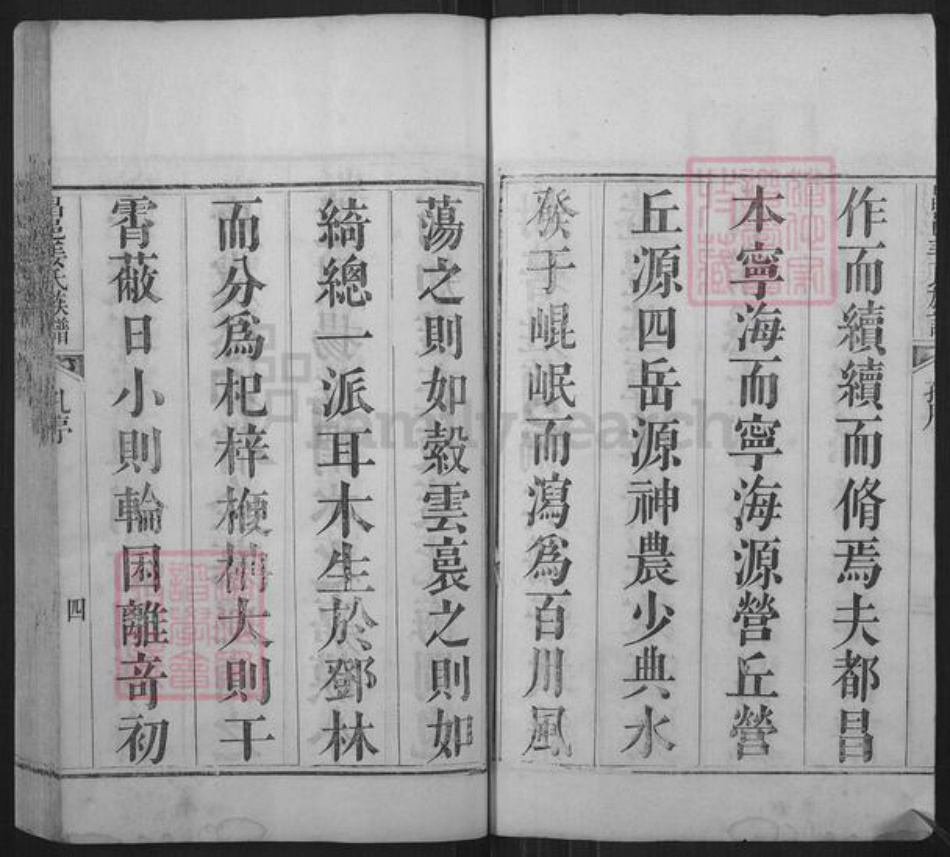 作而續續而脩焉夫都昌
本寧海而寧海源營丘營
丘源四岳源神農少典水
發于崐岷而瀉爲百川風
蕩之則如縠雲裛之則如
綺總一派耳木生於鄧林
而分爲杞梓楩楠大則干
霄蔽日小則輪囷離奇初
邑姜氏族譜
四
FamilySearch